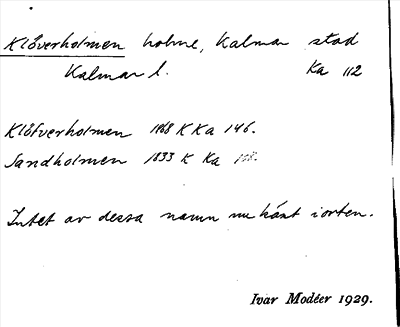 Klöverholmen holme, Kalmar stad
Kalmar l. Ka 112
Klöfverholmen 1868 K Ka 146.
Sandholmen 1833 K Ka
Intet av dessa namn nu känt i orten.
Ivar Modéer 1929.